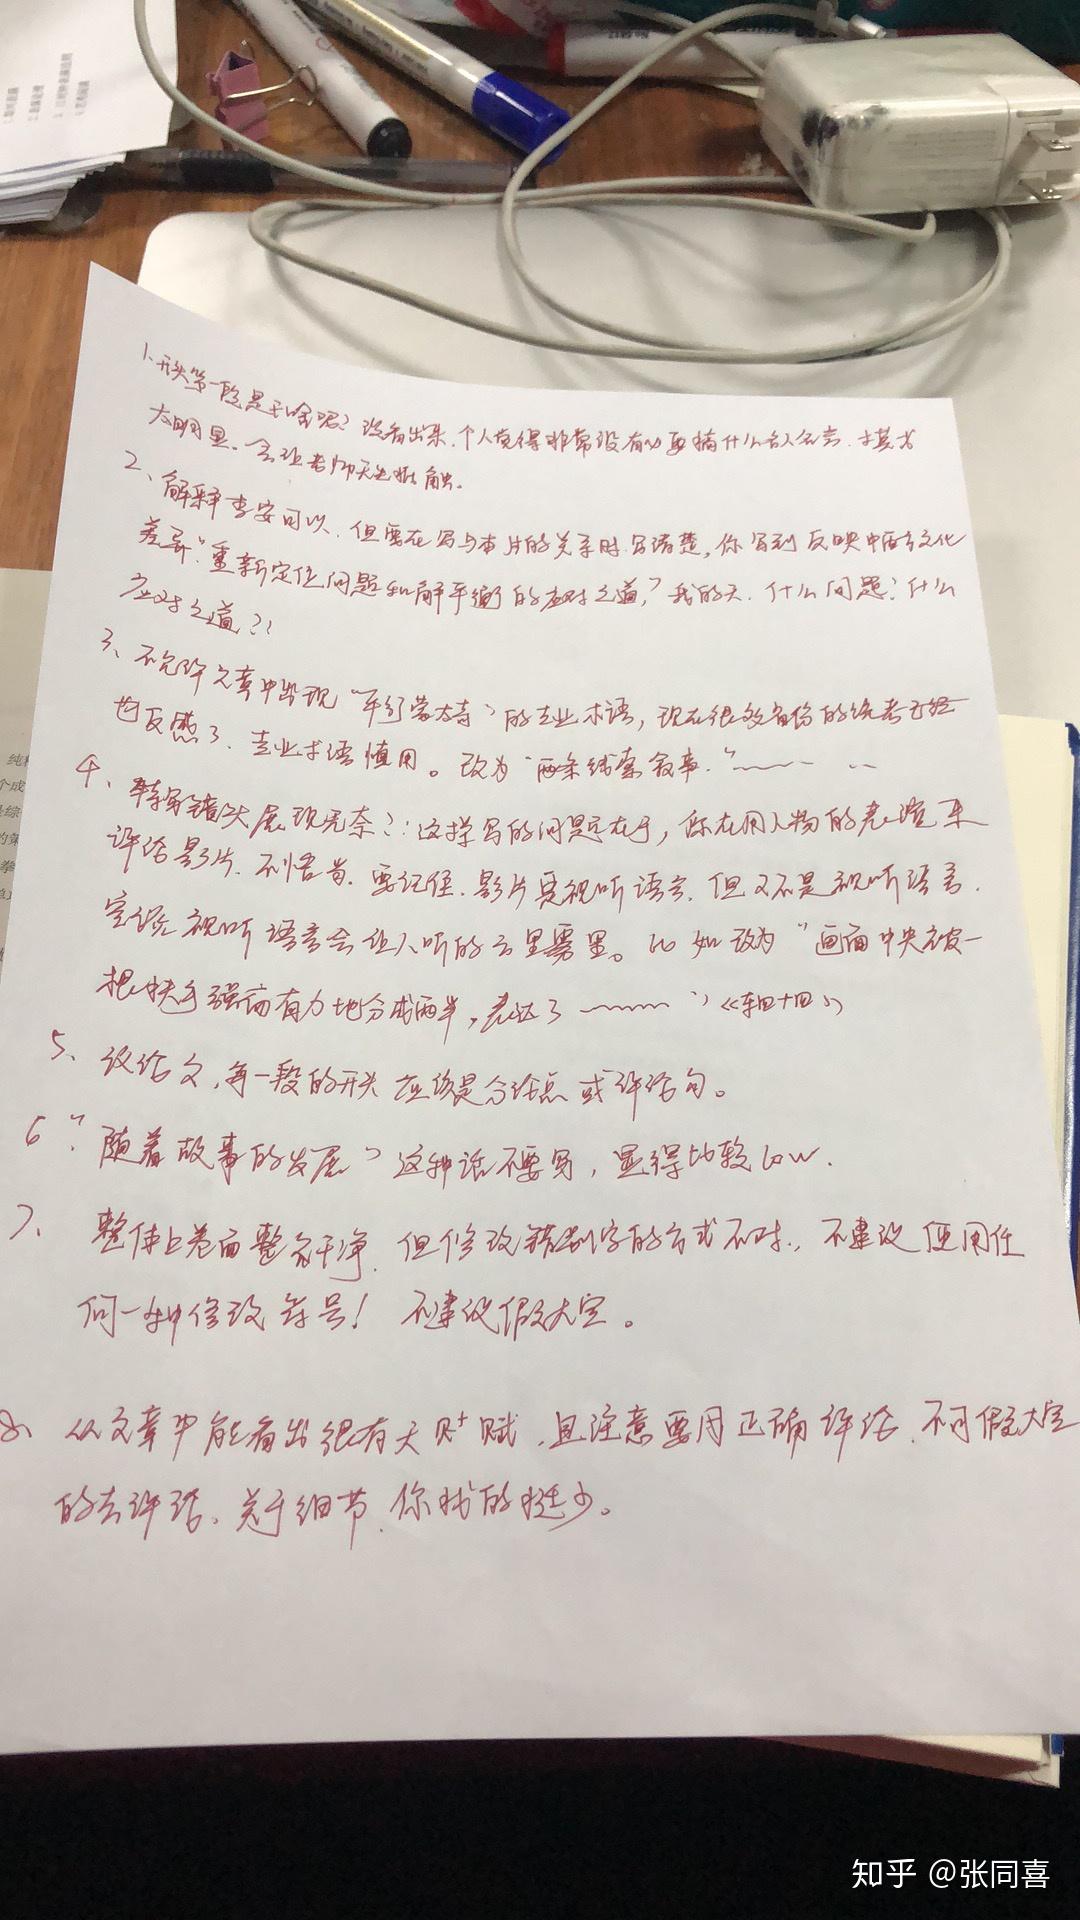 1、开头第一段是干啥呢？没看出来、个人觉得非常没有必要搞什么名人名言、才
太明显、会让老师天生抵触。
2、解释李安可以、但要在写与本片的关系时写清楚，你写到反映中西方文化
差异“重新定位问题和解平衡的应对之道”？我的天、什么问题？什么
应对之道？！
3、不允许文章中出现“平行蒙太奇”的专业术语，现在很多省份的统考已经
也反感了、专业术语慎用。改为“两条线索叙事.”
4、特写镜头展现无奈？：这样写的问题还在于，你在用人物的表演来
评论影片、不恰当、要记住、影片是视听语言、但又不是视听语言、
视听语言会让人听的云里雾里。比如改为“画面中央被一
根扶手强而有力地分成两半，表达了 ”《车四十四》
5、议论文，每一段的开头应该是分论点或评论句。
6、“随着故事的发展”这种话不要写，显得比较low.
7、整体上卷面整齐干净、但修改错别字的方式不对.，不建议使用任
何一种修改符号！不建议假大空。
8、从文章中能看出很有天赋，且注意要用正确评论、不可假大空
的去评论、关于细节、你找的挺少。
纯
个成
是综
拳
知乎 @张同喜